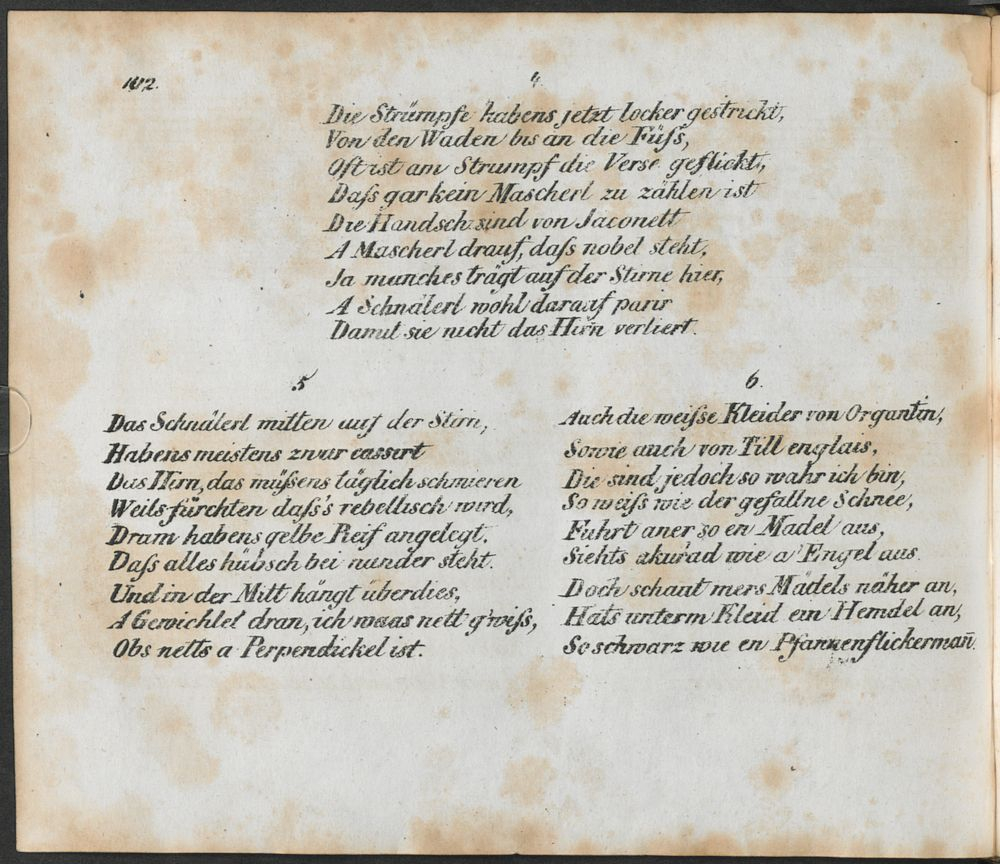 102.
4.
Die Strümpfe habens jetzt locker gestrickt,
Von den Waden bis an die Füſs,
Oft ist am Strumpf die Verse geflickt,
Daſs gar kein Mascherl zu zählen ist
Die Handsch: sind von Jaconett
A Mascherl drauf, daſs nobel steht,
Ja manches trägt auf der Stirne hier,
A Schnälerl wohl darauf parir
Damit sie nicht das Hirn verliert.
5
Das Schnälerl mitten auf der Stirn,
Habens meistens zwar cassert
Das Hirn, das müſsens täglich schmieren
Weils fürchten daſs's rebellisch wird,
Dram habens gelbe Reif angelegt,
Daſs alles hübsch bei nander steht.
Und in der Mitt hängt überdies,
A Gewichtlet dran, ich waas nett g'wiſs,
Obs netts a Perpendickel ist.
6.
Auch die weiſse Kleider von Organtin,
Sowie auch von Till englais,
Die sind jedoch so wahr ich bin,
So weiſs wie der gefallne Schnee,
Fuhrt aner so en Madel aus,
Siehts akurad wie a' Engel aus.
Doch schaut mers Mädels näher an,
Hats unterm Kleid ein Hemdel an,
So schwarz wie en Pfannenflickermañ.